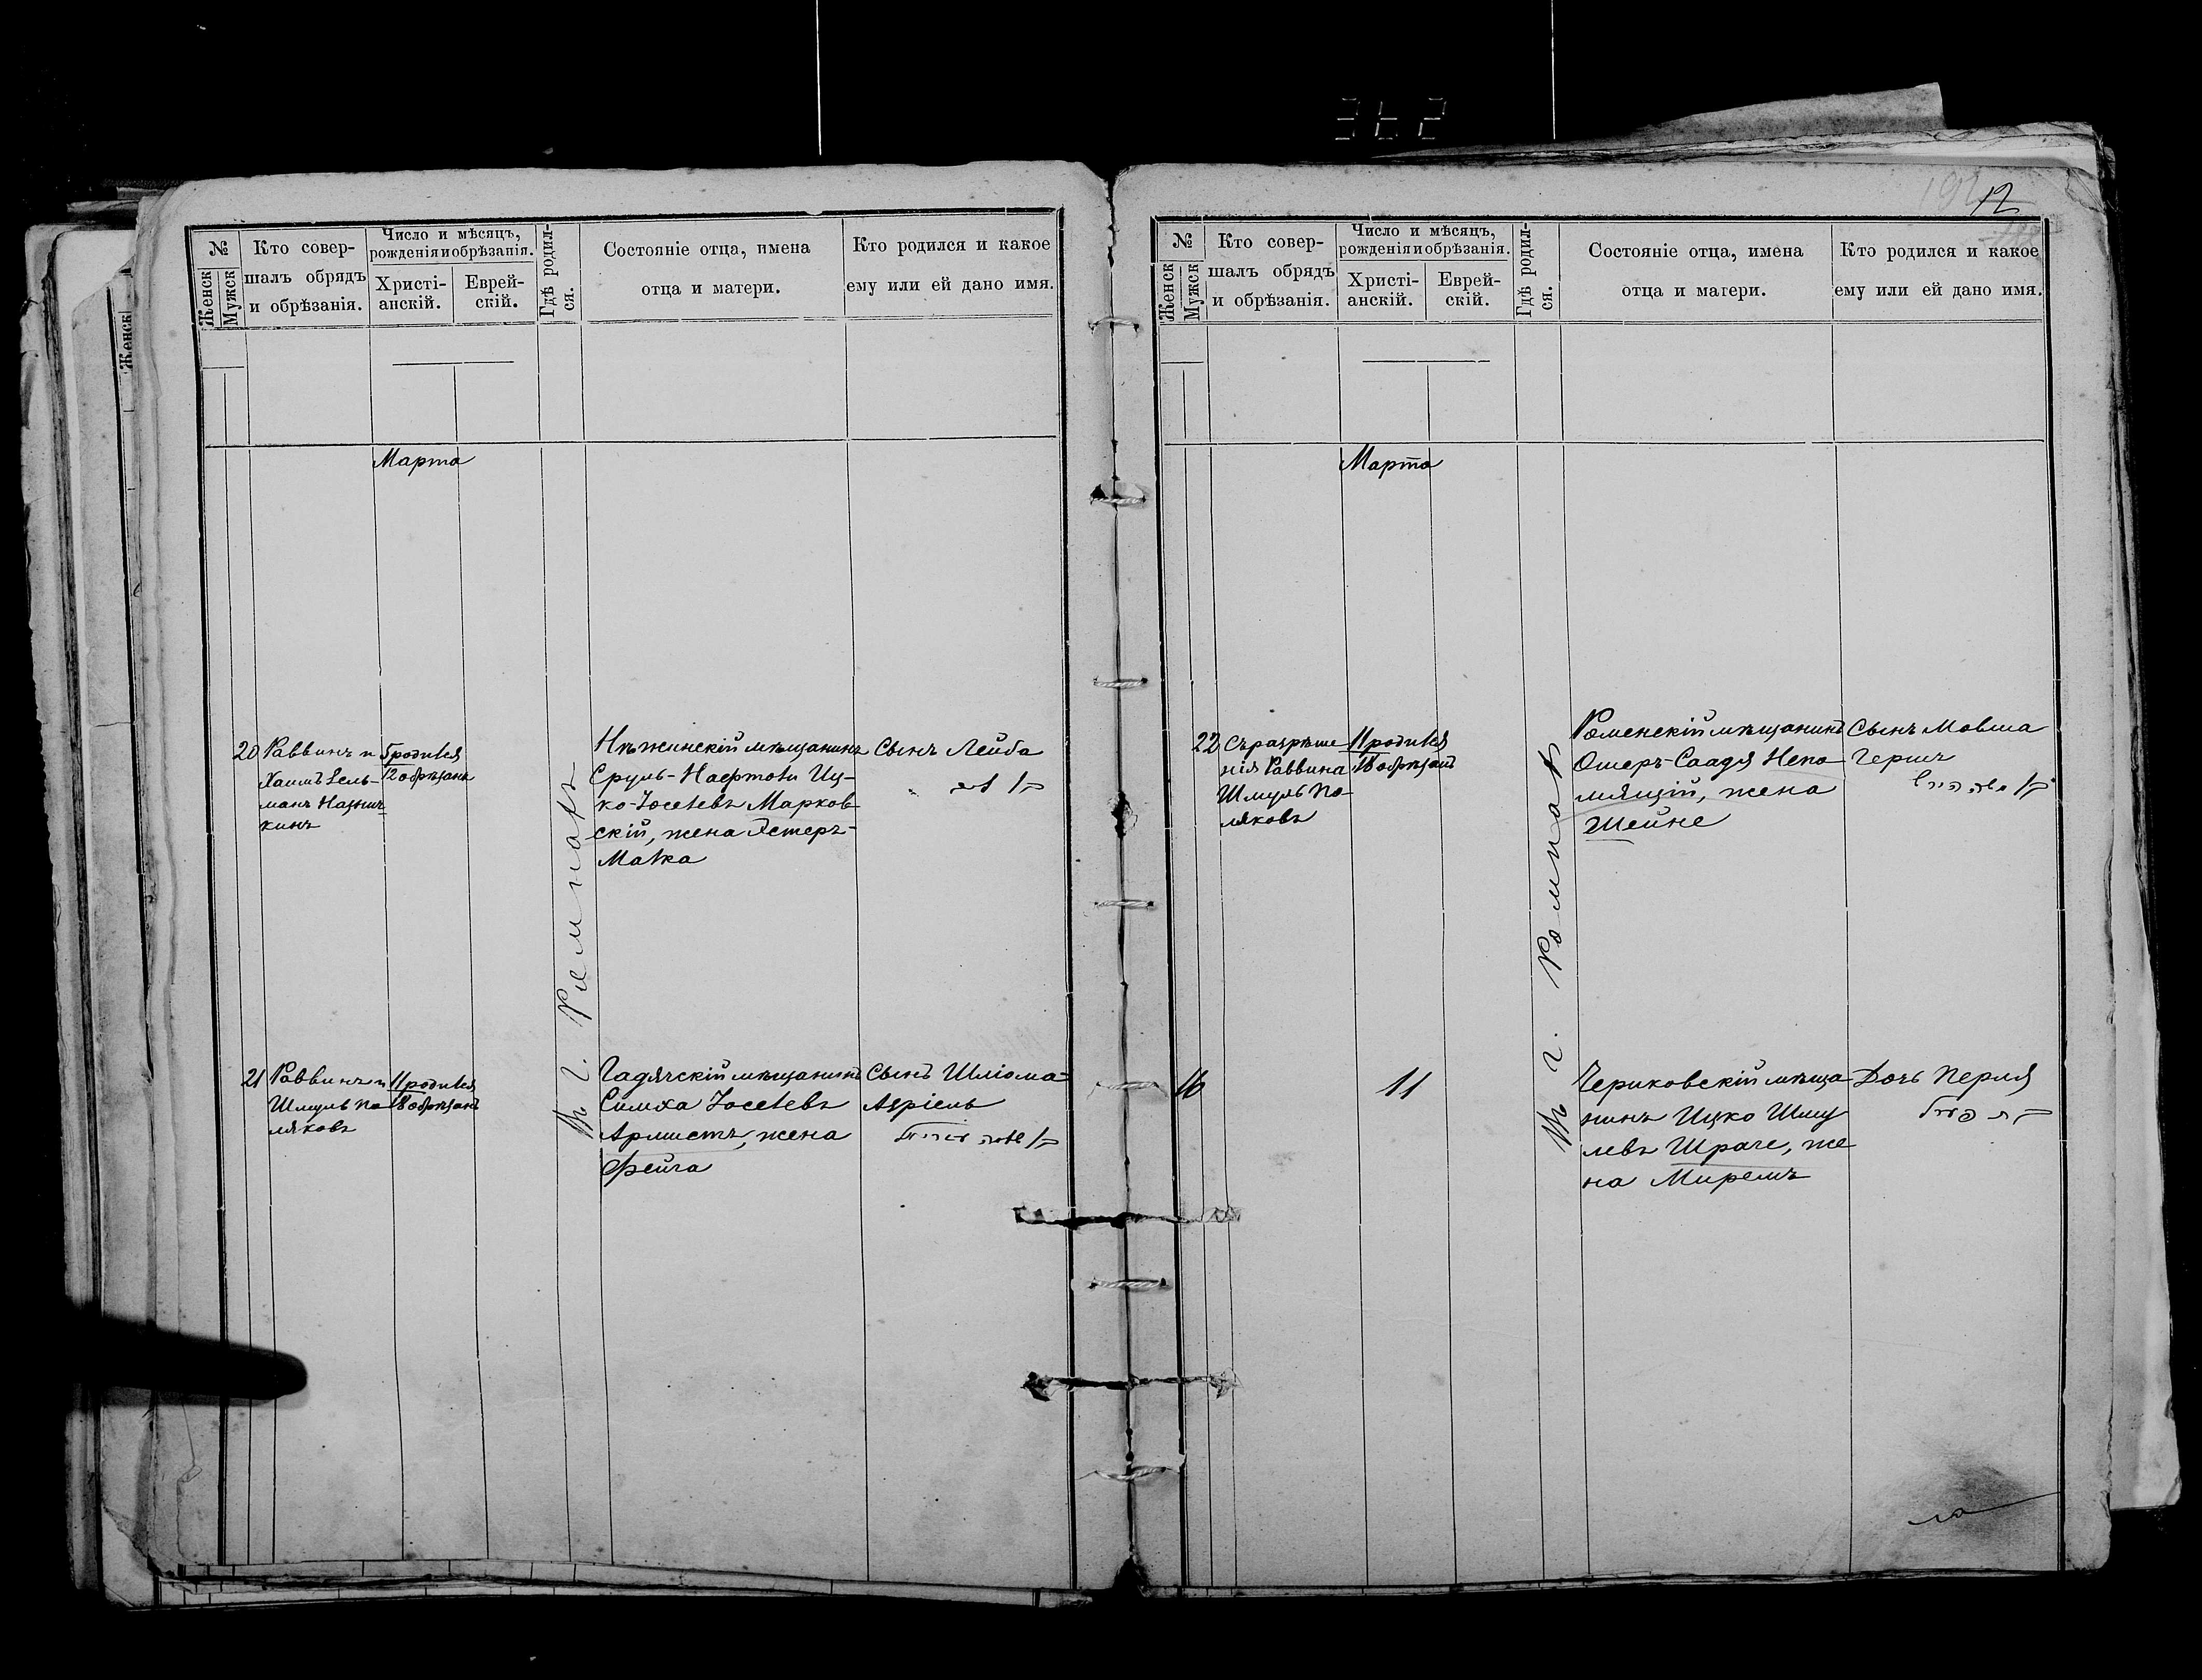 362
12
№
Женск
Мужск
Кто совер-
шалъ обрядъ
и обрѣзанія.
Число и мѣсяцъ,
рожденія и обрѣзанія.
Христі-
анскій.
Еврей-
скій.
Гдѣ родил-
ся.
Состояніе отца, имена
отца и матери.
Кто родился и какое
ему или ей дано имя.
Марта
20
Раввинъ и
Хаимъ Зель-
манъ
кинъ
5 родился
12 обрѣзанъ
Въ г. Ромнахъ
Нѣжинскій мѣщанинъ
Сруль-Нафтоли Иц-
ко-Іоселевъ Марков-
скій, жена Эстеръ-
Малка
Сынъ Лейба
21
Раввинъ и
Шмуль По-
ляковъ
11 родился
18 обрѣзанъ
Гадячскій мѣщанинъ
Симха Іоселевъ
жена
Фейга
Сынъ Шліома-
Азріель
№
Женск
Мужск
Кто совер-
шалъ обрядъ
и обрѣзанія.
Число и мѣсяцъ,
рожденія и обрѣзанія.
Христі-
анскій.
Еврей-
скій.
Гдѣ родил-
ся.
Состояніе отца, имена
отца и матери.
Кто родился и какое
ему или ей дано имя.
Марта
22
Съ разрѣше
нія Раввина
Шмуль По-
ляковъ
11 родился
18 обрѣзанъ
Въ г. Ромнахъ
Роменскій мѣщанинъ
Ошеръ-Саадя Непо
мящій, жена
Шейне
Сынъ Мовша
Гершъ
16
11
Чериковскій мѣща
нинъ Ицко Шму
левъ Шраге, же
на Миремъ
Дочь Перля